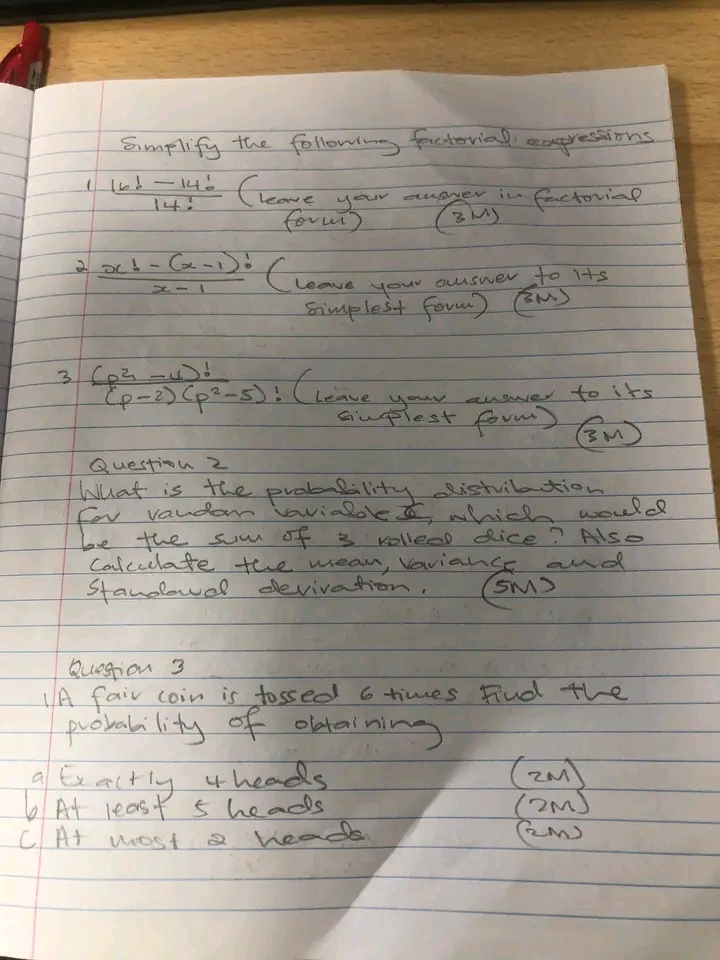 Simplify the following factorial expressions
1 16! - 14! (leave your answer in factorial
14! form) (3M)
2 x! - (x-1)! (leave your answer to its
x - 1 simplest form) (3M)
3 (p² - 4)!
(p-2)(p²-5)! (leave your answer to its
simplest form) (3M)
Question 2
What is the probability distribution
for random variable X, which would
be the sum of 3 rolled dice? Also
calculate the mean, variance and
Standard derivation. (5M)
Question 3
1 A fair coin is tossed 6 times Find the
probability of obtaining
a Exactly 4 heads (2M)
b At least 5 heads (2M)
c At most 2 heads (2M)